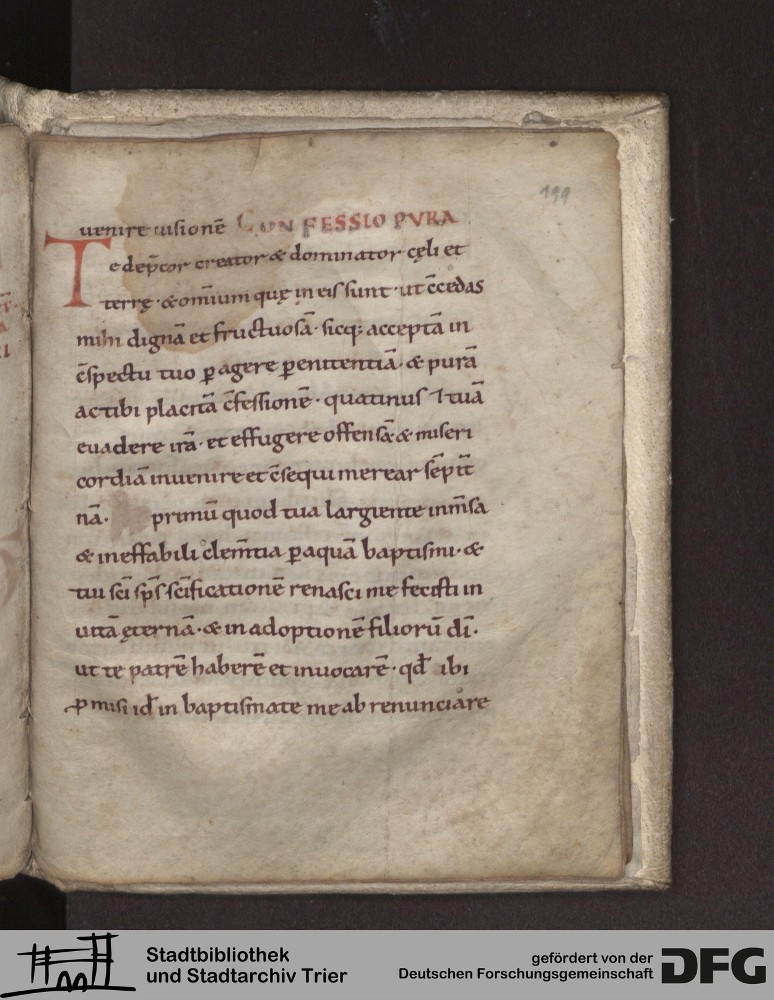 199
uenire uisionē CONFESSIO PVRA
Te dep̄cor creator & dominator cęli et
terrę · & om̄ium quę in eis sunt · ut c̄cedas
mihi dignā et fructuosā · sicq; acceptā in
c̄spectu tuo ꝑagere penitentiā · & purā
ac tibi placitā c̄fessionē · quatinus ⁊ tuā
euadere irā · et effugere offensā & miseri
cordiā inuenire et c̄sequi merear sēpit̄
nā · primū quod tua largiente inm̄sa
& ineffabili clem̄tia ꝑ aquā baptismi · &
tui sc̄i sp̄s sc̄ificationē renasci me fecisti in
uitā ęternā · & in adoptionē filiorū dī ·
ut te patrē haberē et inuocarē · qd̄ ibi
ꝓmisi id̄ in baptismate me ab renunciare
Stadtbibliothek
und Stadtarchiv Trier
gefördert von der
Deutschen Forschungsgemeinschaft
DFG